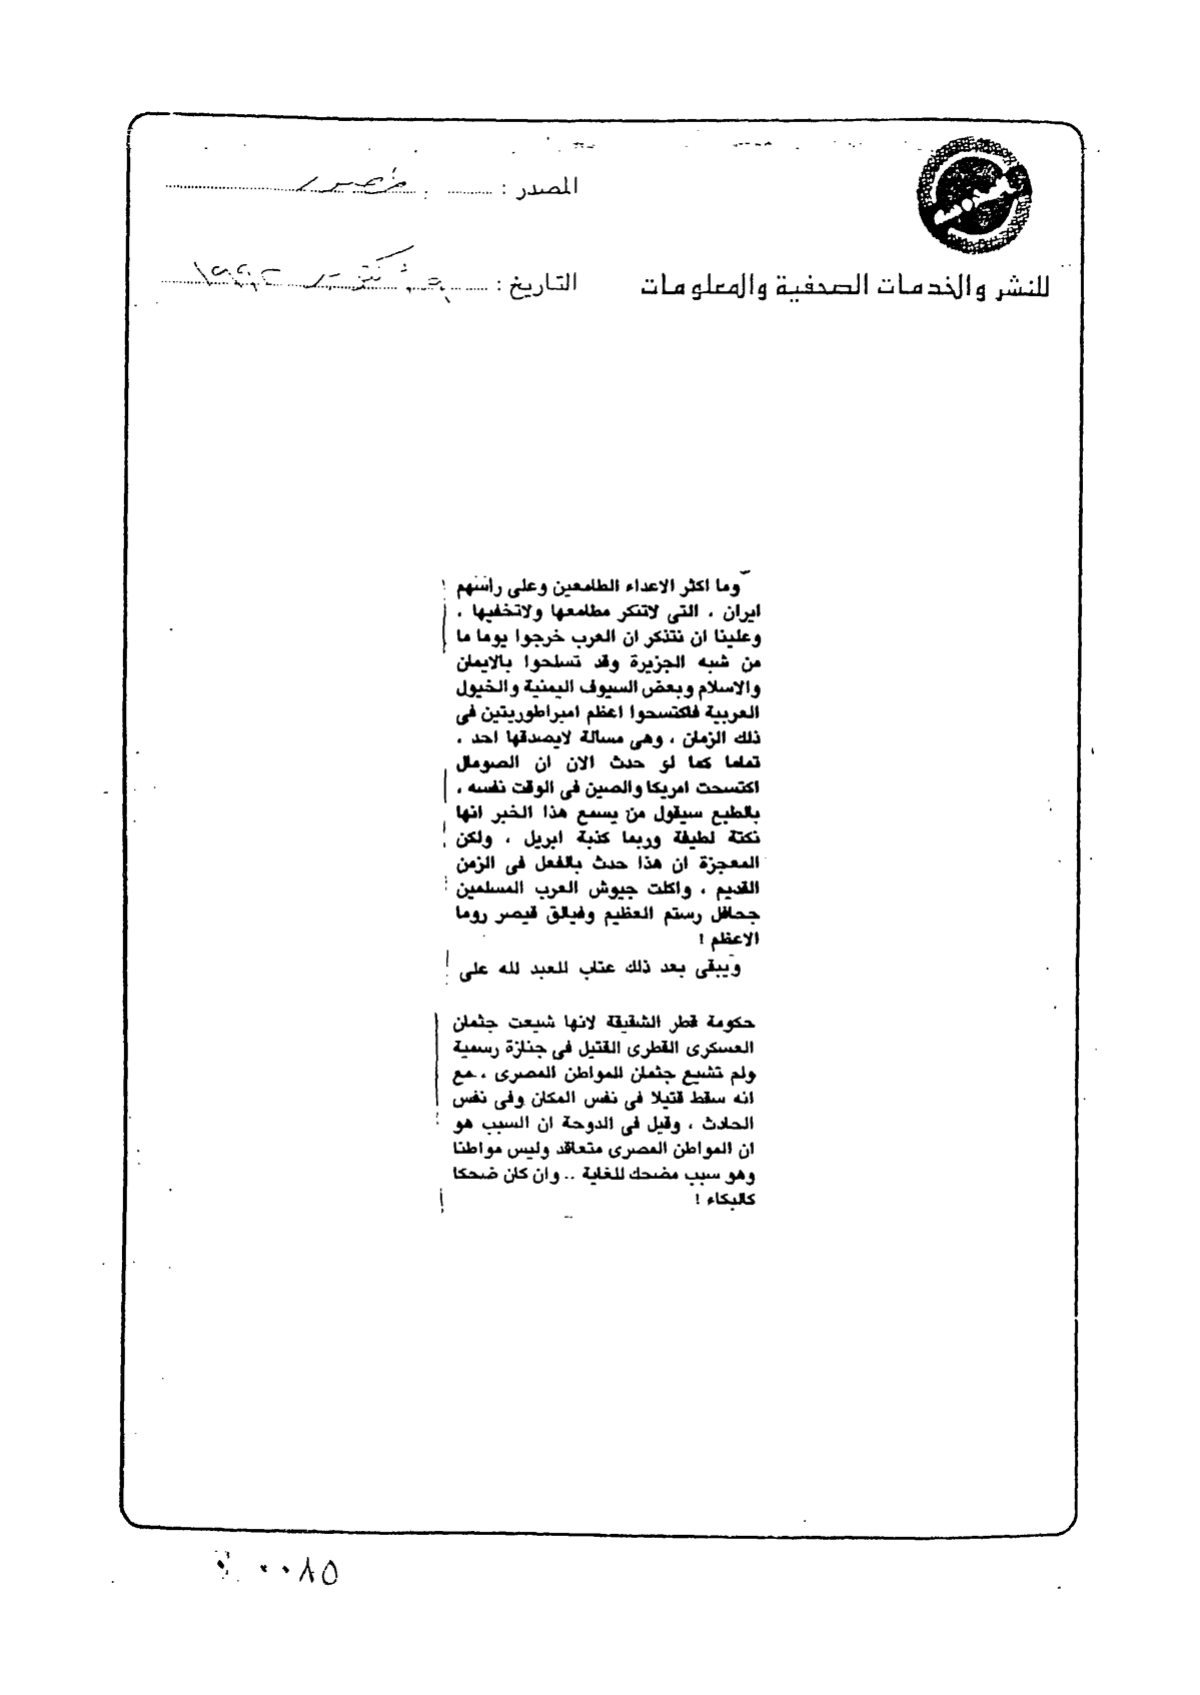 المصدر :
للنشر والخدمات الصحفية والمعلومات
التاريخ : أكتوبر ١٩٩٢
وما اكثر الاعداء الطامعين وعلى راسهم
ايران ، التى لاتنكر مطامعها ولاتخفيها .
وعلينا ان نتذكر ان العرب خرجوا يوما ما
من شبه الجزيرة وقد تسلحوا بالايمان
والاسلام وبعض السيوف اليمنية والخيول
العربية فاكتسحوا اعظم امبراطوريتين فى
ذلك الزمان ، وهى مسالة لايصدقها احد ،
تماما كما لو حدث الان ان الصومال
اكتسحت امريكا والصين فى الوقت نفسه ،
بالطبع سيقول من يسمع هذا الخبر انها
نكتة لطيفة وربما كذبة ابريل ، ولكن
المعجزة ان هذا حدث بالفعل فى الزمن
القديم ، واكلت جيوش العرب المسلمين
جحافل رستم العظيم وفيالق قيصر روما
الاعظم !
ويبقى بعد ذلك عتاب للعبد لله على
حكومة قطر الشقيقة لانها شيعت جثمان
العسكرى القطرى القتيل فى جنازة رسمية
ولم تشيع جثمان المواطن المصرى ، مع
انه سقط قتيلا فى نفس المكان وفى نفس
الحادث ، وقيل فى الدوحة ان السبب هو
ان المواطن المصرى متعاقد وليس مواطنا
وهو سبب مضحك للغاية .. وان كان ضحكا
كالبكاء !
٠٠٨٥